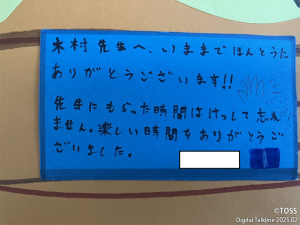 木村先生へ、いままでほんとうに
ありがとうございます!!
先生にもらった時間はけっして忘れ
ません。楽しい時間をありがとうご
ざいました。
©TOSS
Digital Talkline 2025.02